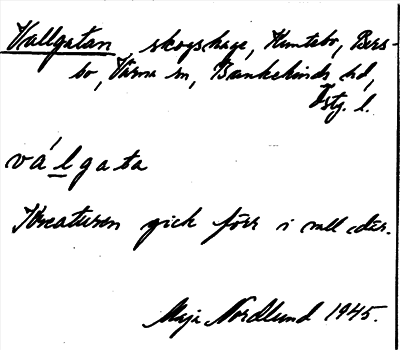 Vallgatan, skogshage, Humtebo, Bers-
bo, Värna sn, Bankekinds hd,
Östg. l.
vá̱lgata
Kreaturen gick förr i vall där.
Maja Nordlund 1945.